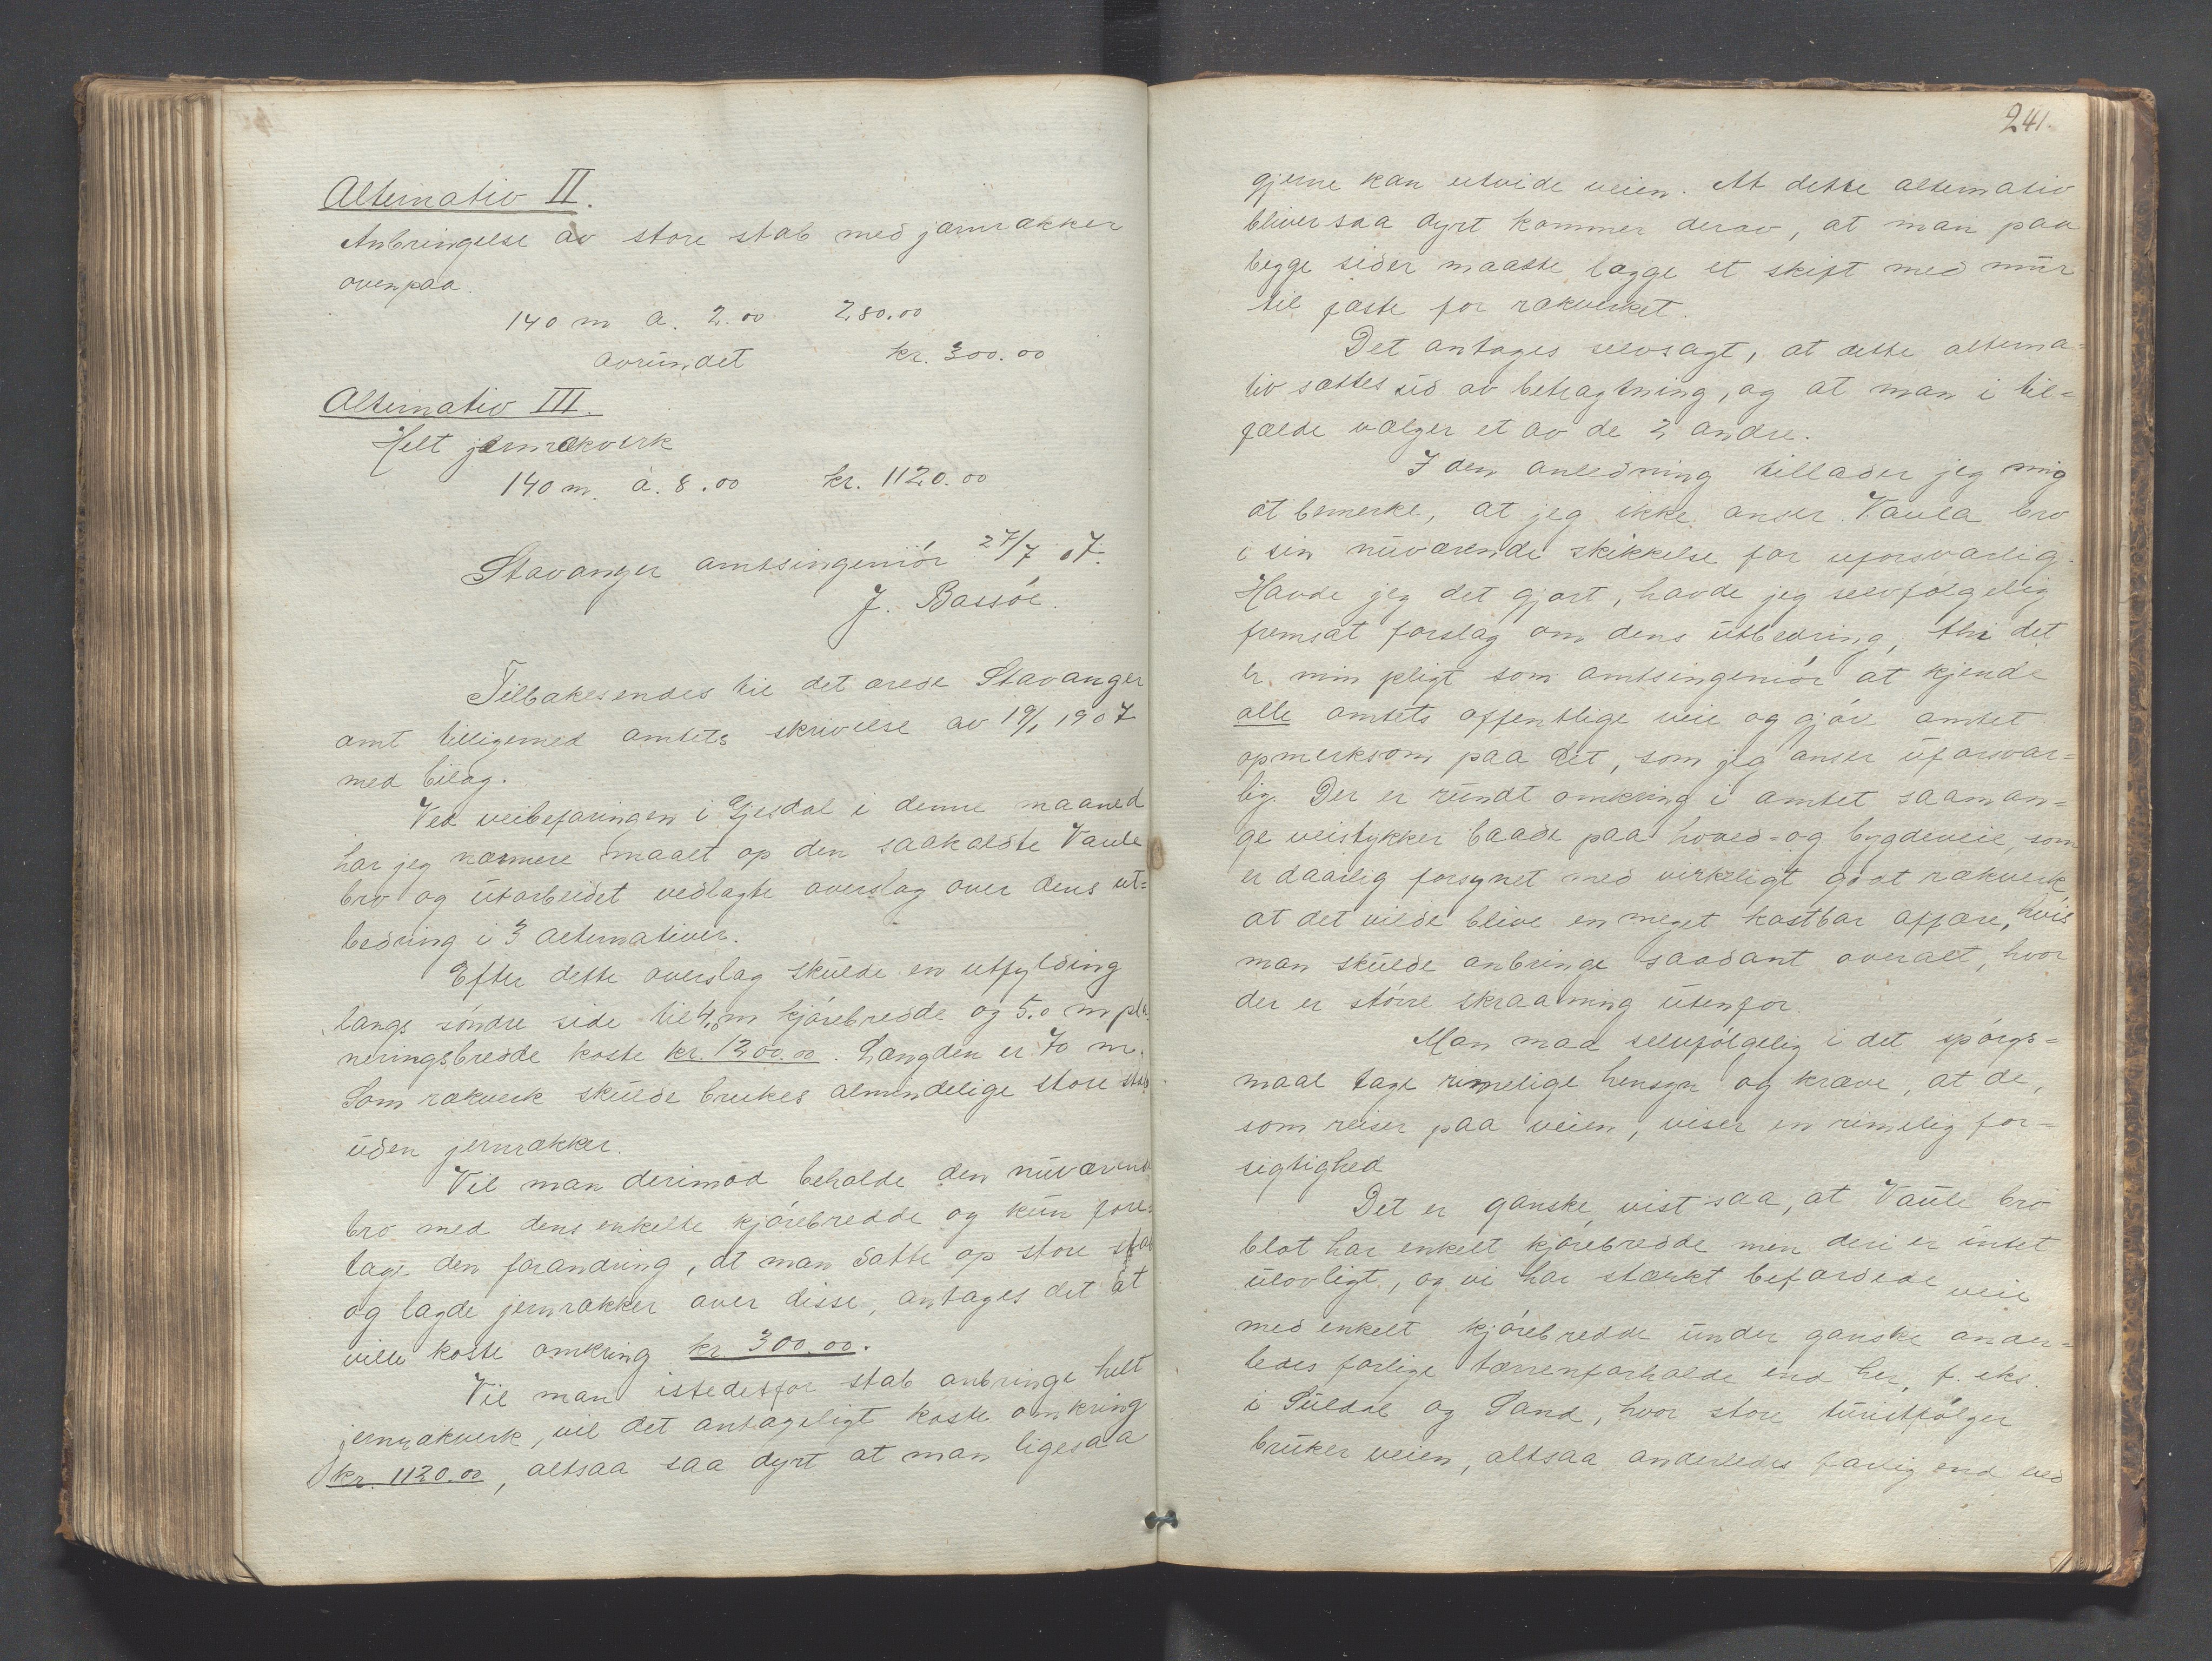 Alternativ II.
Anbringelse av store stab med jærnrækker
ovenpaa.
140 m a. 2.00 280.00
avrundet kr. 300.00
Alternativ III.
Helt jernrækverk
140 m. à. 8.00 kr. 1120.00
Stavanger amtsingeniör 27/7 07.
J. Bassöe.
Tilbakesendes til det ærede Stavanger
amt tilligemed amtets skrivelse av 19/1 1907
med bilag.
Ved veibefaringen i Gjesdal i denne maaned
har jeg nærmere maalt op den saakaldte Vaule
bro og utarbeidet vedlagte overslag over dens ut=
bedring i 3 alternativer.
Efter dette overslag skulde en utfylding
langs söndre side til 4,0 m kjörebredde og 5.0 m pla=
neringsbredde koste kr. 1200.00. Længden er 70 m.
Som rækverk skulde brukes almindelige store stab
uden jernrækker.
Vil man derimod beholde den nuværende
bro med dens enkelte kjörebredde og kun fore=
tage den forandring, at man satte op store stab
og lagde jernrækker over disse, antages det at
ville koste omkring kr 300.00.
Vil man istedetfor stab anbringe helt
jernrækverk, vil det antageligt koste omkring
kr. 1120.00, altsaa saa dyrt at man ligesaa
241.
gjerne kan utvide veien. At dette alternativ
bliver saa dyrt kommer derav, at man paa
begge sider maatte lægge et skift med mur
til fæste for rækverket.
Det antages selvsagt, at dette alterna=
tiv sættes ud av betragtning, og at man i til=
fælde vælger et av de 2 andre.
I den anledning tillader jeg mig
at bemerke, at jeg ikke anser Vaula bro
i sin nuværende skikkelse for uforsvarlig.
Havde jeg det gjort, havde jeg selvfölgelig
fremsat forslag om dens utbedring, thi det
er min pligt som amtsingeniör at kjende
alle amtets offentlige veie og gjöre amtet
opmerksom paa det, som jeg anser uforsvar=
lig. Der er rundt omkring i amtet saa man=
ge veistykker baade paa hoved= og bygdeveie, som
er daarlig forsynet med virkeligt godt rækverk,
at det vilde blive en meget kostbar affære, hvis
man skulde anbringe saadant overalt, hvor
der er större skraaning utenfor.
Man maa selvfölgelig i det spörgs=
maal tage rimelige hensyn og kræve, at de,
som reiser paa veien, viser en rimelig for=
sigtighed
Det er ganske vist saa, at Vaule bro
blot har enkelt kjörebredde men deri er intet
ulovligt, og vi har stærkt befærdede veie
med enkelt kjörebredde under ganske ander=
ledes farlige tærrenforholde end her, f. eks.
i Suldal og Sand, hvor store turistfölger
bruker veien, altsaa anderledes farlig end ved